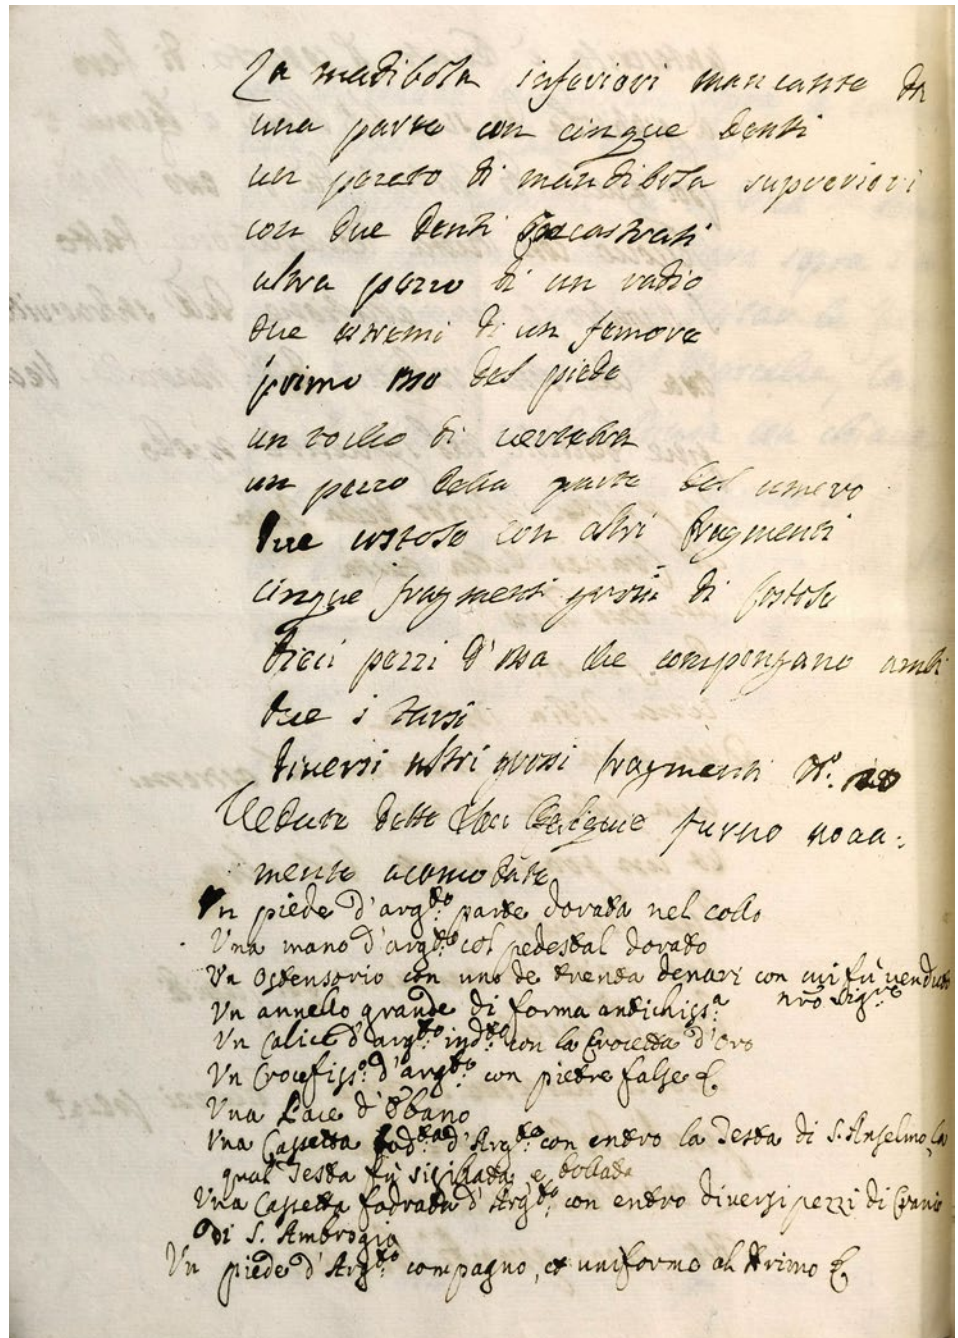 La madibola inferiori mancante da
una parte con cinque denti
un pezeto di mandibola supreriori
con due denti incastrati
altra pezzo di un radio
due estremi di un femore
primo osso del piede
un rochio di vertebra
un pezzo della parte del umero
Due costole con altri fragmenti
cinque fragmenti grossi di Costole
Dieci pezzi d'ossa che compongano ambi
due i tarsi
diversi altri grossi fragmenti N.º
Vedute dette Reliquie furno noua-
mente acomodate
Un piede d'arg.to parte dorata nel collo
Una mano d'arg.to col pedestal dorato
Un Ostensorio con uno de trenta denari con cui fù venduto
nrõ Sig.re
Un annello grande di forma antichiss.a
Un Calice d'arg.to ind.to con la Crocetta d'Oro
Un Crocefiss.o d'arg.to con pietre false &
Una Pace d'Ebano
Una Cassetta fod.ta d'Arg.to con entro la Testa di S. Anselmo, la
qual Testa fù sigillata, e bollata
Una Cassetta fodrata d'Arg.to con entro diversi pezzi di Cranio
di S. Ambrogio
Un piede d'Arg.to compagno, et uniforme al Primo &